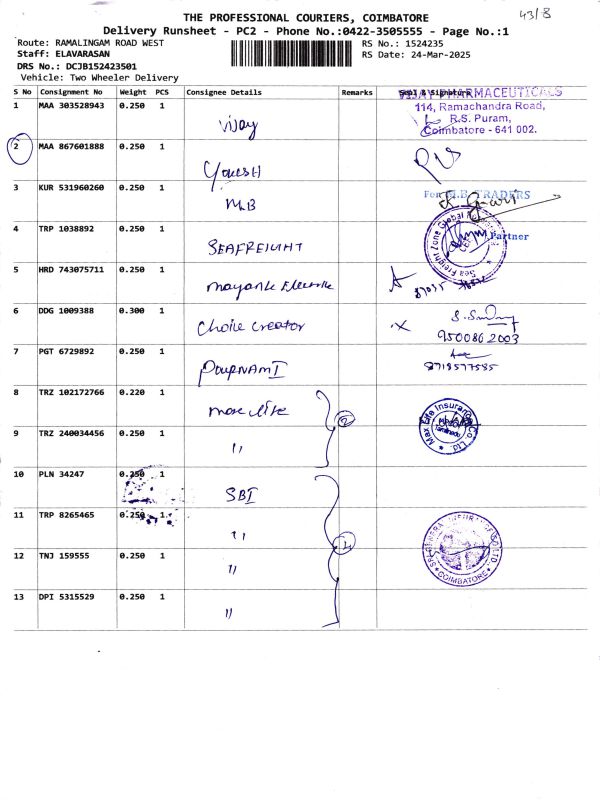 THE PROFESSIONAL COURIERS, COIMBATORE
43/8
Delivery Runsheet - PC2 - Phone No.:0422-3505555 - Page No.:1
Route: RAMALINGAM ROAD WEST
RS No.: 1524235
Staff: ELAVARASAN
RS Date: 24-Mar-2025
DRS No.: DCJB152423501
Vehicle: Two Wheeler Delivery
S No Consignment No Weight PCS Consignee Details Remarks Seal & Signature
VIJAY PHARMACEUTICALS
1 MAA 303528943 0.250 1 Vijay
114, Ramachandra Road,
R.S. Puram,
Coimbatore - 641 002.
2 MAA 867601888 0.250 1 YOKESH
3 KUR 531960260 0.250 1 M.B
For M.B TRADERS
Partner
4 TRP 1038892 0.250 1 SEAFREIGHT
Sea Freight Zone Global
5 HRD 743075711 0.250 1 mayank Electric
6 DDG 1009388 0.300 1 Choice creator
9500862003
7 PGT 6729892 0.250 1 POURNAMI
8718577585
8 TRZ 102172766 0.220 1 max life
2
Max Life Insurance Co. Ltd.
9 TRZ 240034456 0.250 1 "
10 PLN 34247 0.250 1 SBI
11 TRP 8265465 0.250 1 "
COIMBATORE
12 TNJ 159555 0.250 1 "
13 DPI 5315529 0.250 1 "